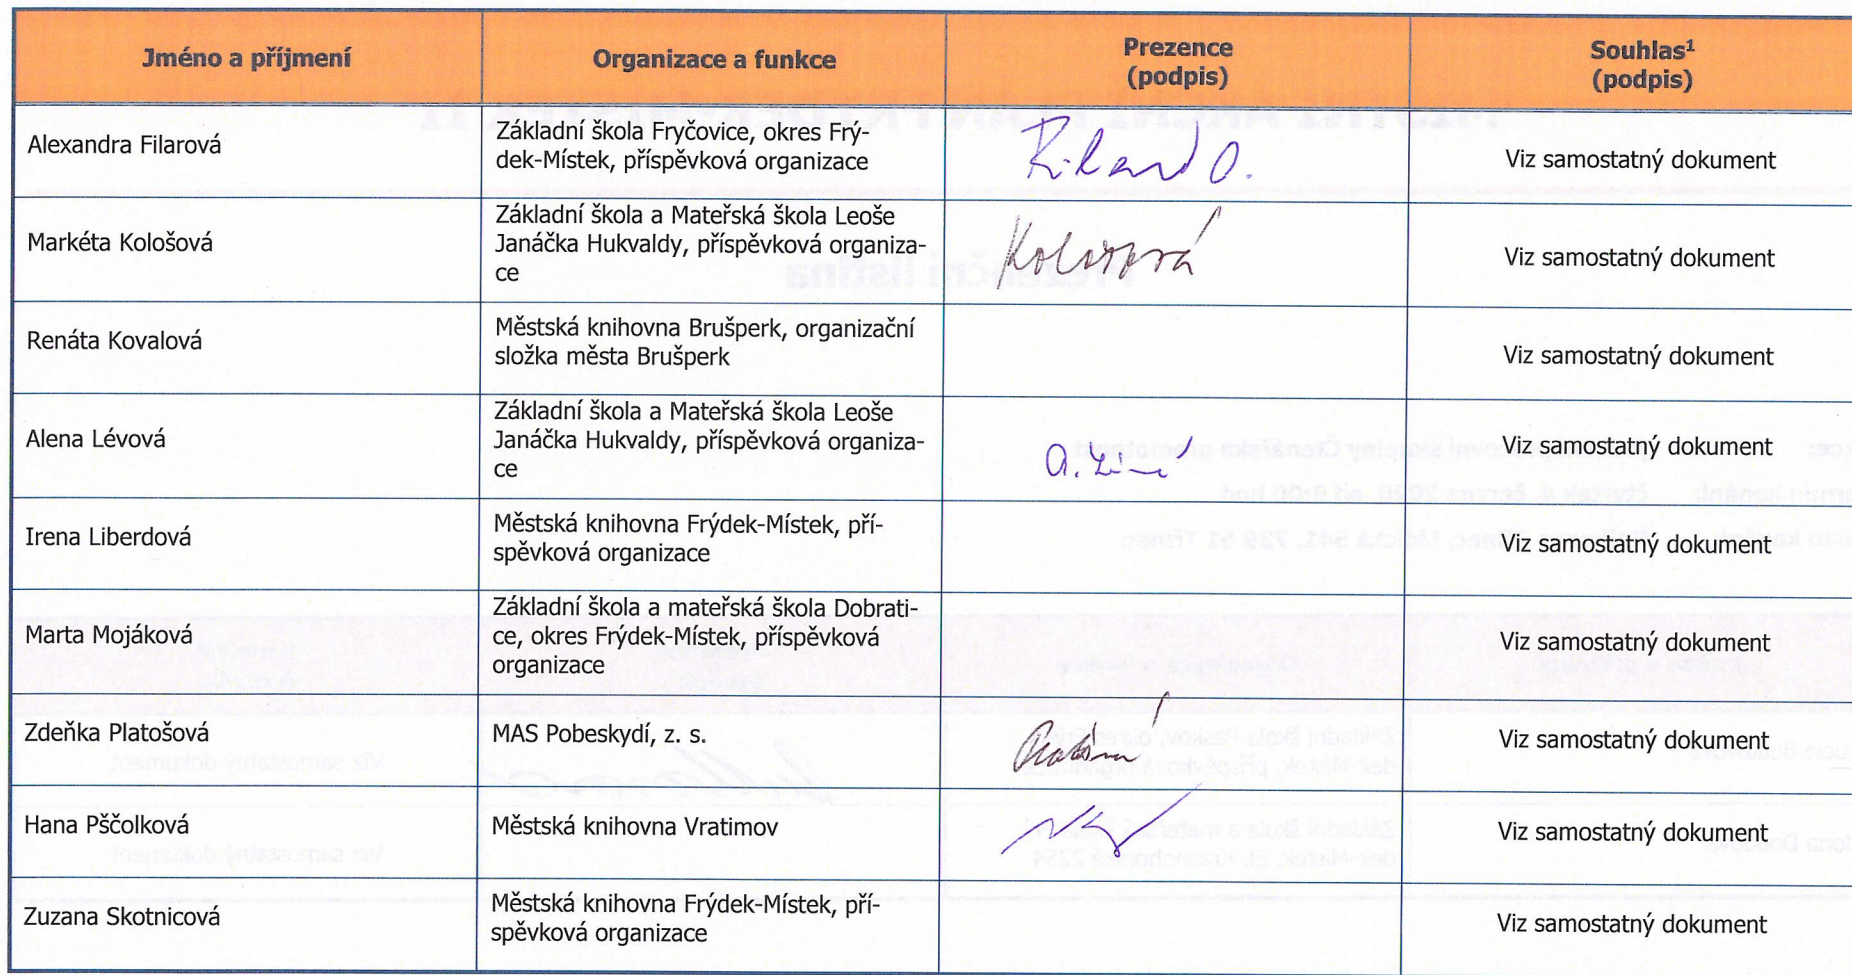 Jméno a příjmení
Organizace a funkce
Prezence
(podpis)
Souhlas¹
(podpis)
Alexandra Filarová
Základní škola Fryčovice, okres Frý-
dek-Místek, příspěvková organizace
Viz samostatný dokument
Markéta Kološová
Základní škola a Mateřská škola Leoše
Janáčka Hukvaldy, příspěvková organiza-
ce
Kološová
Viz samostatný dokument
Renáta Kovalová
Městská knihovna Brušperk, organizační
složka města Brušperk
Viz samostatný dokument
Alena Lévová
Základní škola a Mateřská škola Leoše
Janáčka Hukvaldy, příspěvková organiza-
ce
Viz samostatný dokument
Irena Liberdová
Městská knihovna Frýdek-Místek, pří-
spěvková organizace
Viz samostatný dokument
Marta Mojáková
Základní škola a mateřská škola Dobrati-
ce, okres Frýdek-Místek, příspěvková
organizace
Viz samostatný dokument
Zdeňka Platošová
MAS Pobeskydí, z. s.
Viz samostatný dokument
Hana Pščolková
Městská knihovna Vratimov
Viz samostatný dokument
Zuzana Skotnicová
Městská knihovna Frýdek-Místek, pří-
spěvková organizace
Viz samostatný dokument